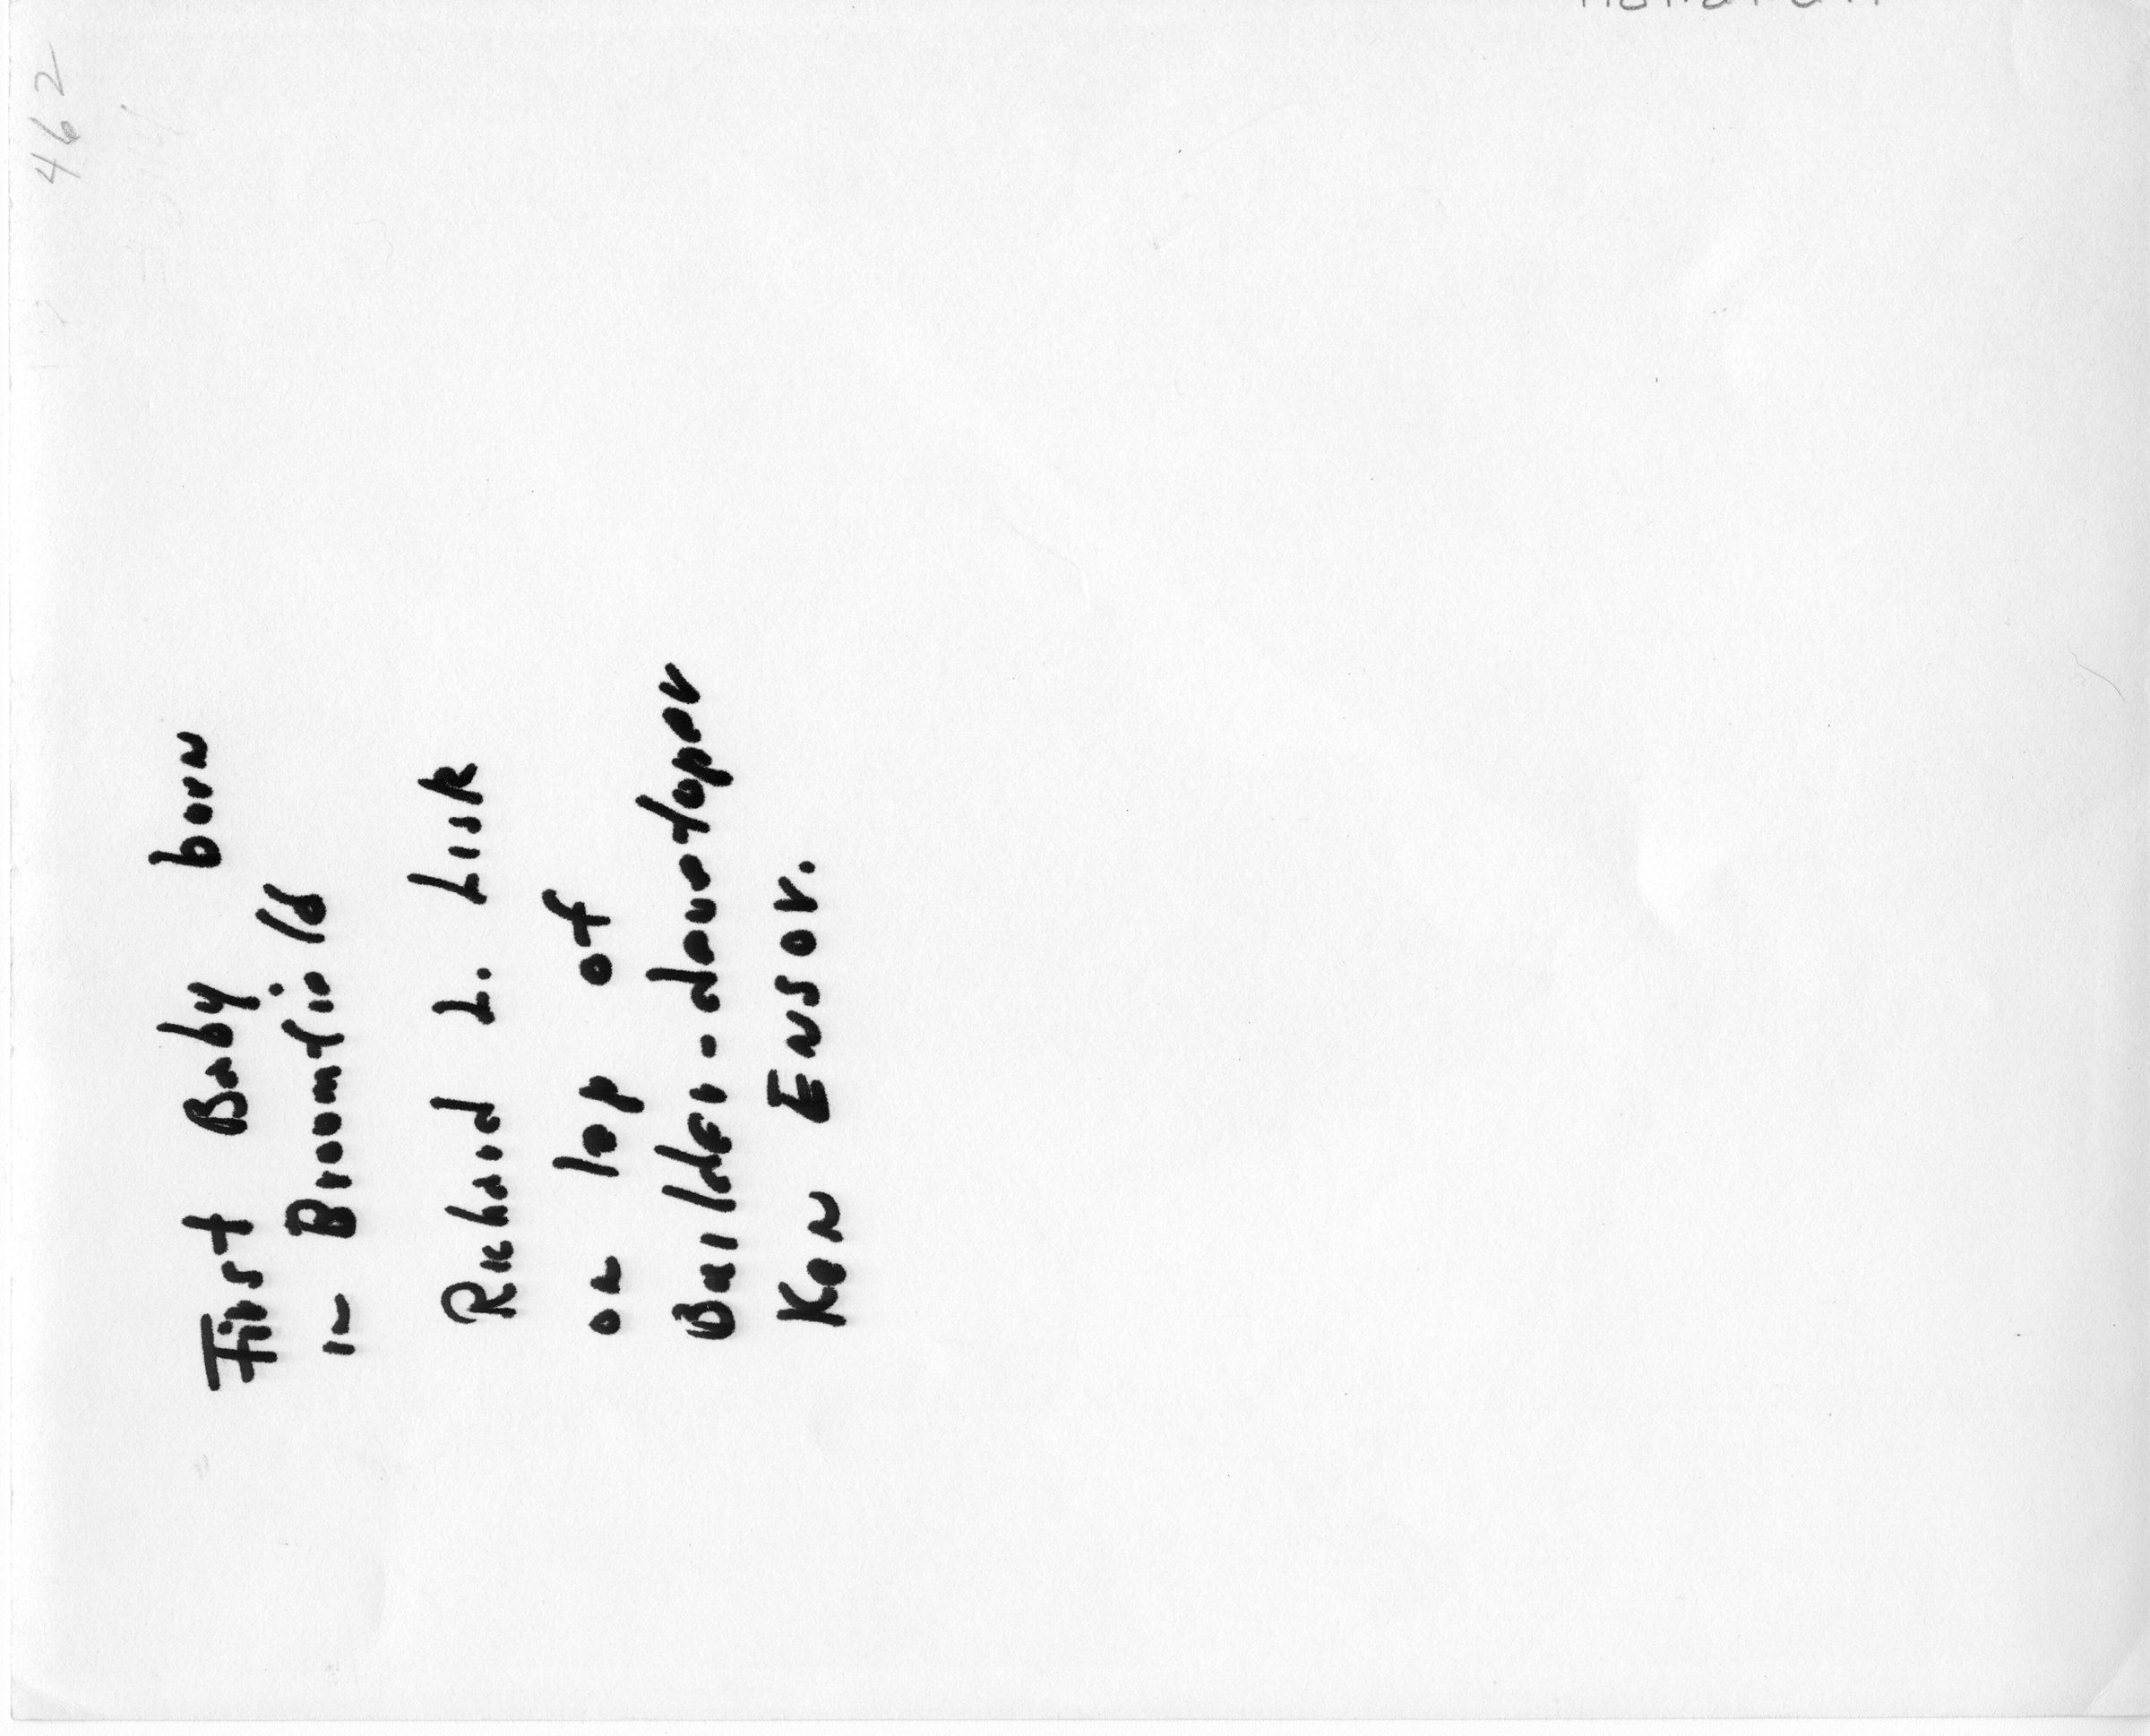 462
First Baby born
in Broomfield
Richard L. Lisk
on lap of
Builder-developer
Ken Ensor.